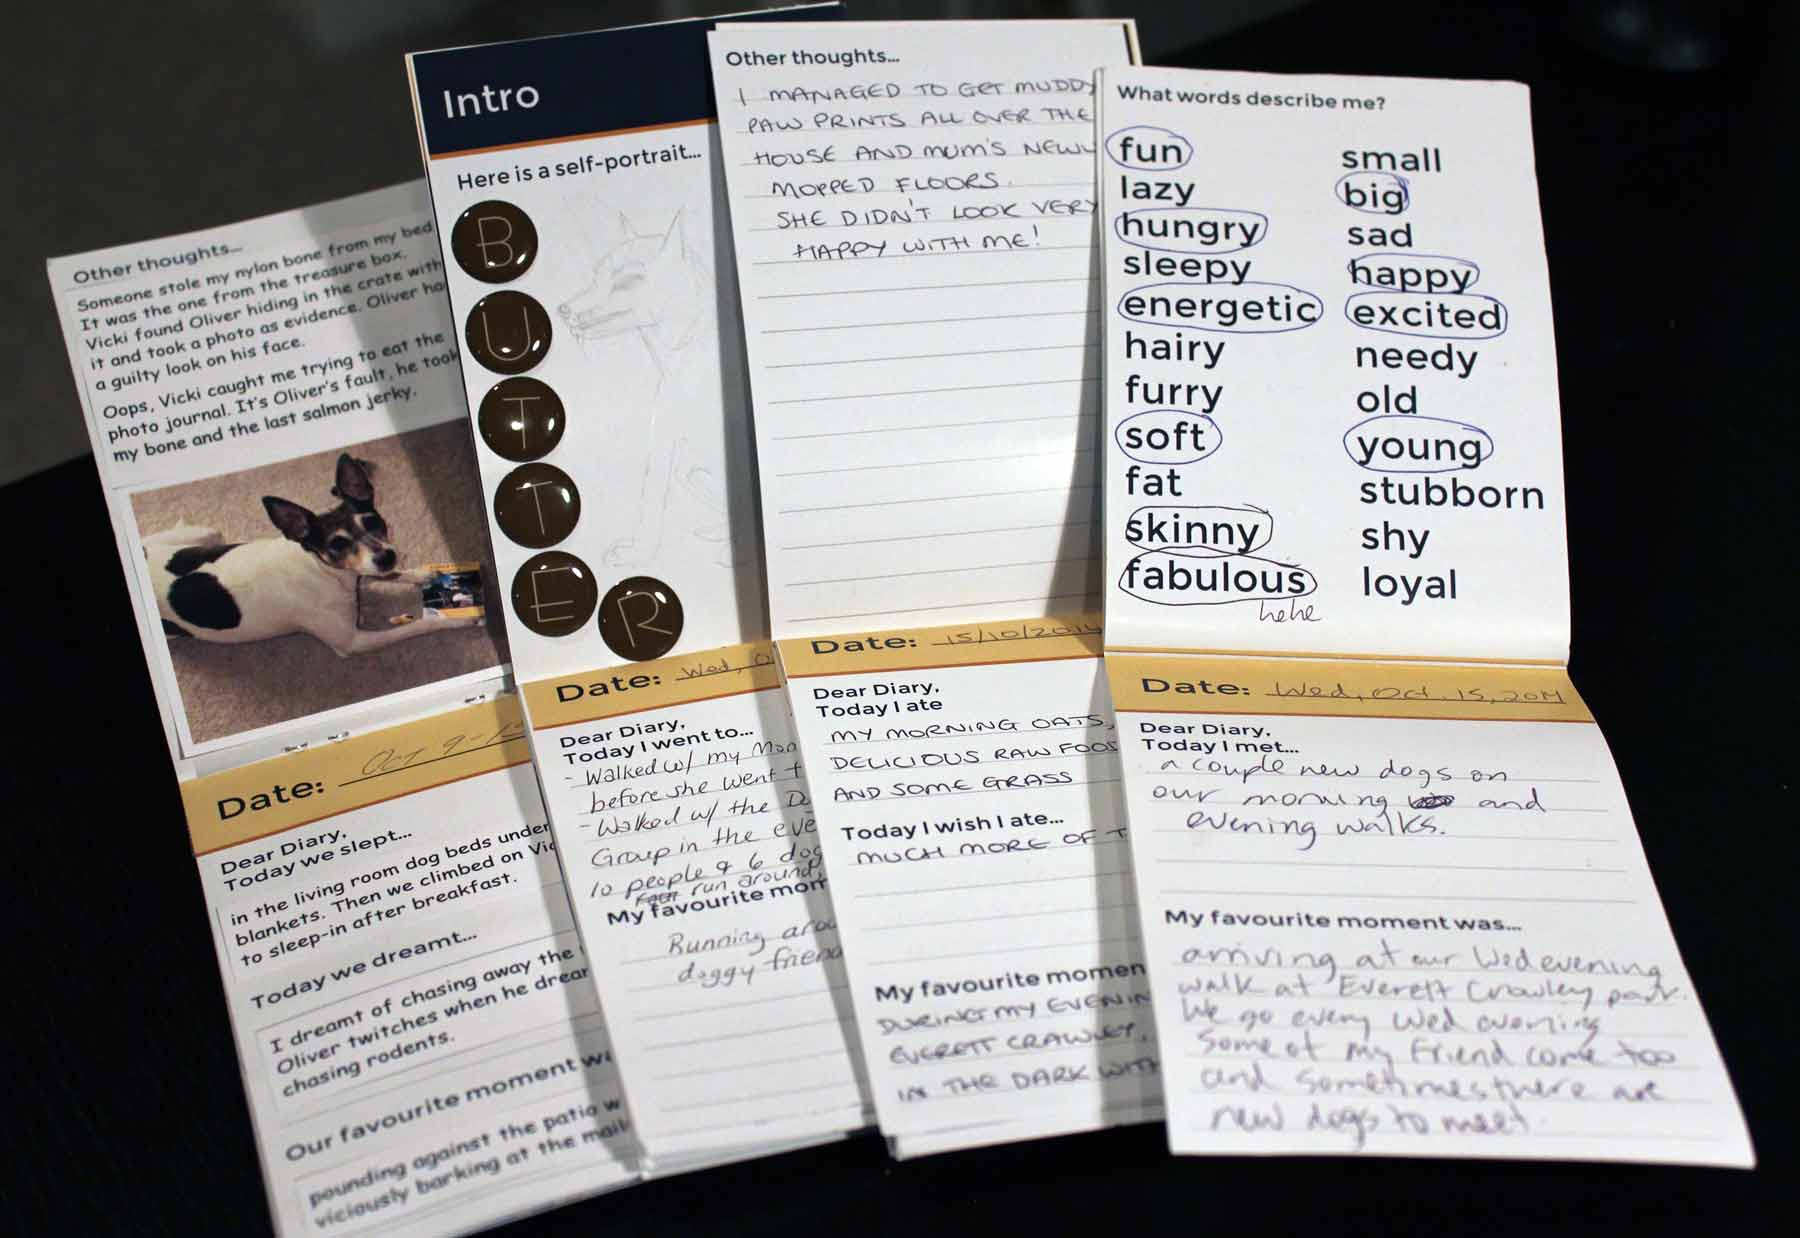 Other thoughts...
Someone stole my nylon bone from my bed.
It was the one from the treasure box.
Vicki found Oliver hiding in the crate with
it and took a photo as evidence. Oliver
a guilty look on his face.
Oops, Vicki caught me trying to eat the
photo journal. It's Oliver's fault, he took
my bone and the last salmon jerky.
Date: Oct 9-
Dear Diary,
Today we slept...
in the living room dog beds under
blankets. Then we climbed on
to sleep-in after breakfast.
Today we dreamt...
I dreamt of chasing away the
Oliver twitches when he
chasing rodents.
Our favourite moment
pounding against the patio
viciously barking at the
Intro
Here is a self-portrait...
B
U
T
T
E
R
Date: Wed, O
Dear Diary,
Today I went to...
- Walked w/ my
before she went
- Walked w/ the
Group in the
10 people & 6
run around,
My favourite
Running
doggy
Other thoughts...
I MANAGED TO GET MUDDY
PAW PRINTS ALL OVER THE
HOUSE AND MUM'S
MOPPED FLOORS.
SHE DIDN'T LOOK VERY
HAPPY WITH ME!
Date: 15/10/2014
Dear Diary,
Today I ate
MY MORNING OATS,
DELICIOUS RAW
AND SOME GRASS
Today I wish I ate...
MUCH MORE OF
My favourite
DURING MY
EVERETT CRAWLEY.
IN THE DARK
What words describe me?
fun small
lazy big
hungry sad
sleepy happy
energetic excited
hairy needy
furry old
soft young
fat stubborn
skinny shy
fabulous loyal
hehe
Date: Wed, Oct. 15, 2014
Dear Diary,
Today I met...
a couple new dogs on
our morning and
evening walks.
My favourite moment was...
arriving at our Wed evening
walk at Everett Crowley park.
We go every Wed evening
some of my friend come too
and sometimes there are
new dogs to meet.